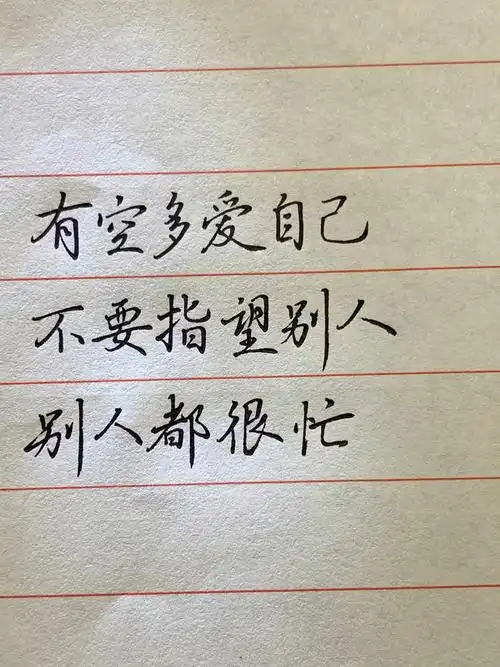 有空多爱自己
不要指望别人
别人都很忙